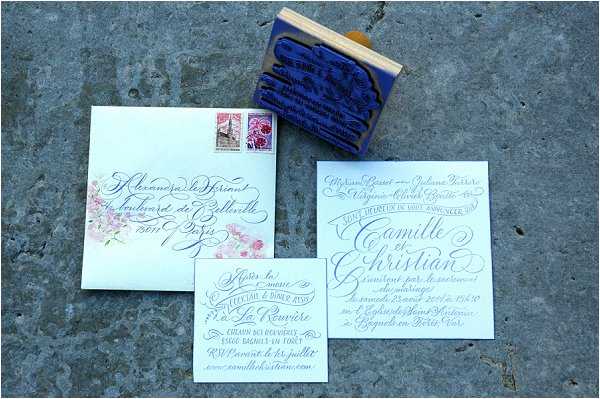 Alexandra de Floriant
boulevard de Belleville
75011 Paris
Après la messe
COCKTAIL & DÎNER ASSIS
à La Rouvière
CHEMIN DES ROUVIÈRES
83600 BAGNOLS EN FORÊT
RSVP avant le 1er juillet
www.camillechristian.com
Myriam Basset Juliane
Virginie Olivier
SONT HEUREUX DE VOUS ANNONCER QUE
Camille
et
Christian
s'uniront par le sacrement
du mariage
le samedi 23 août 2014 à 15h30
en l'Eglise de Saint Antonin
à Bagnols en Forêt, Var